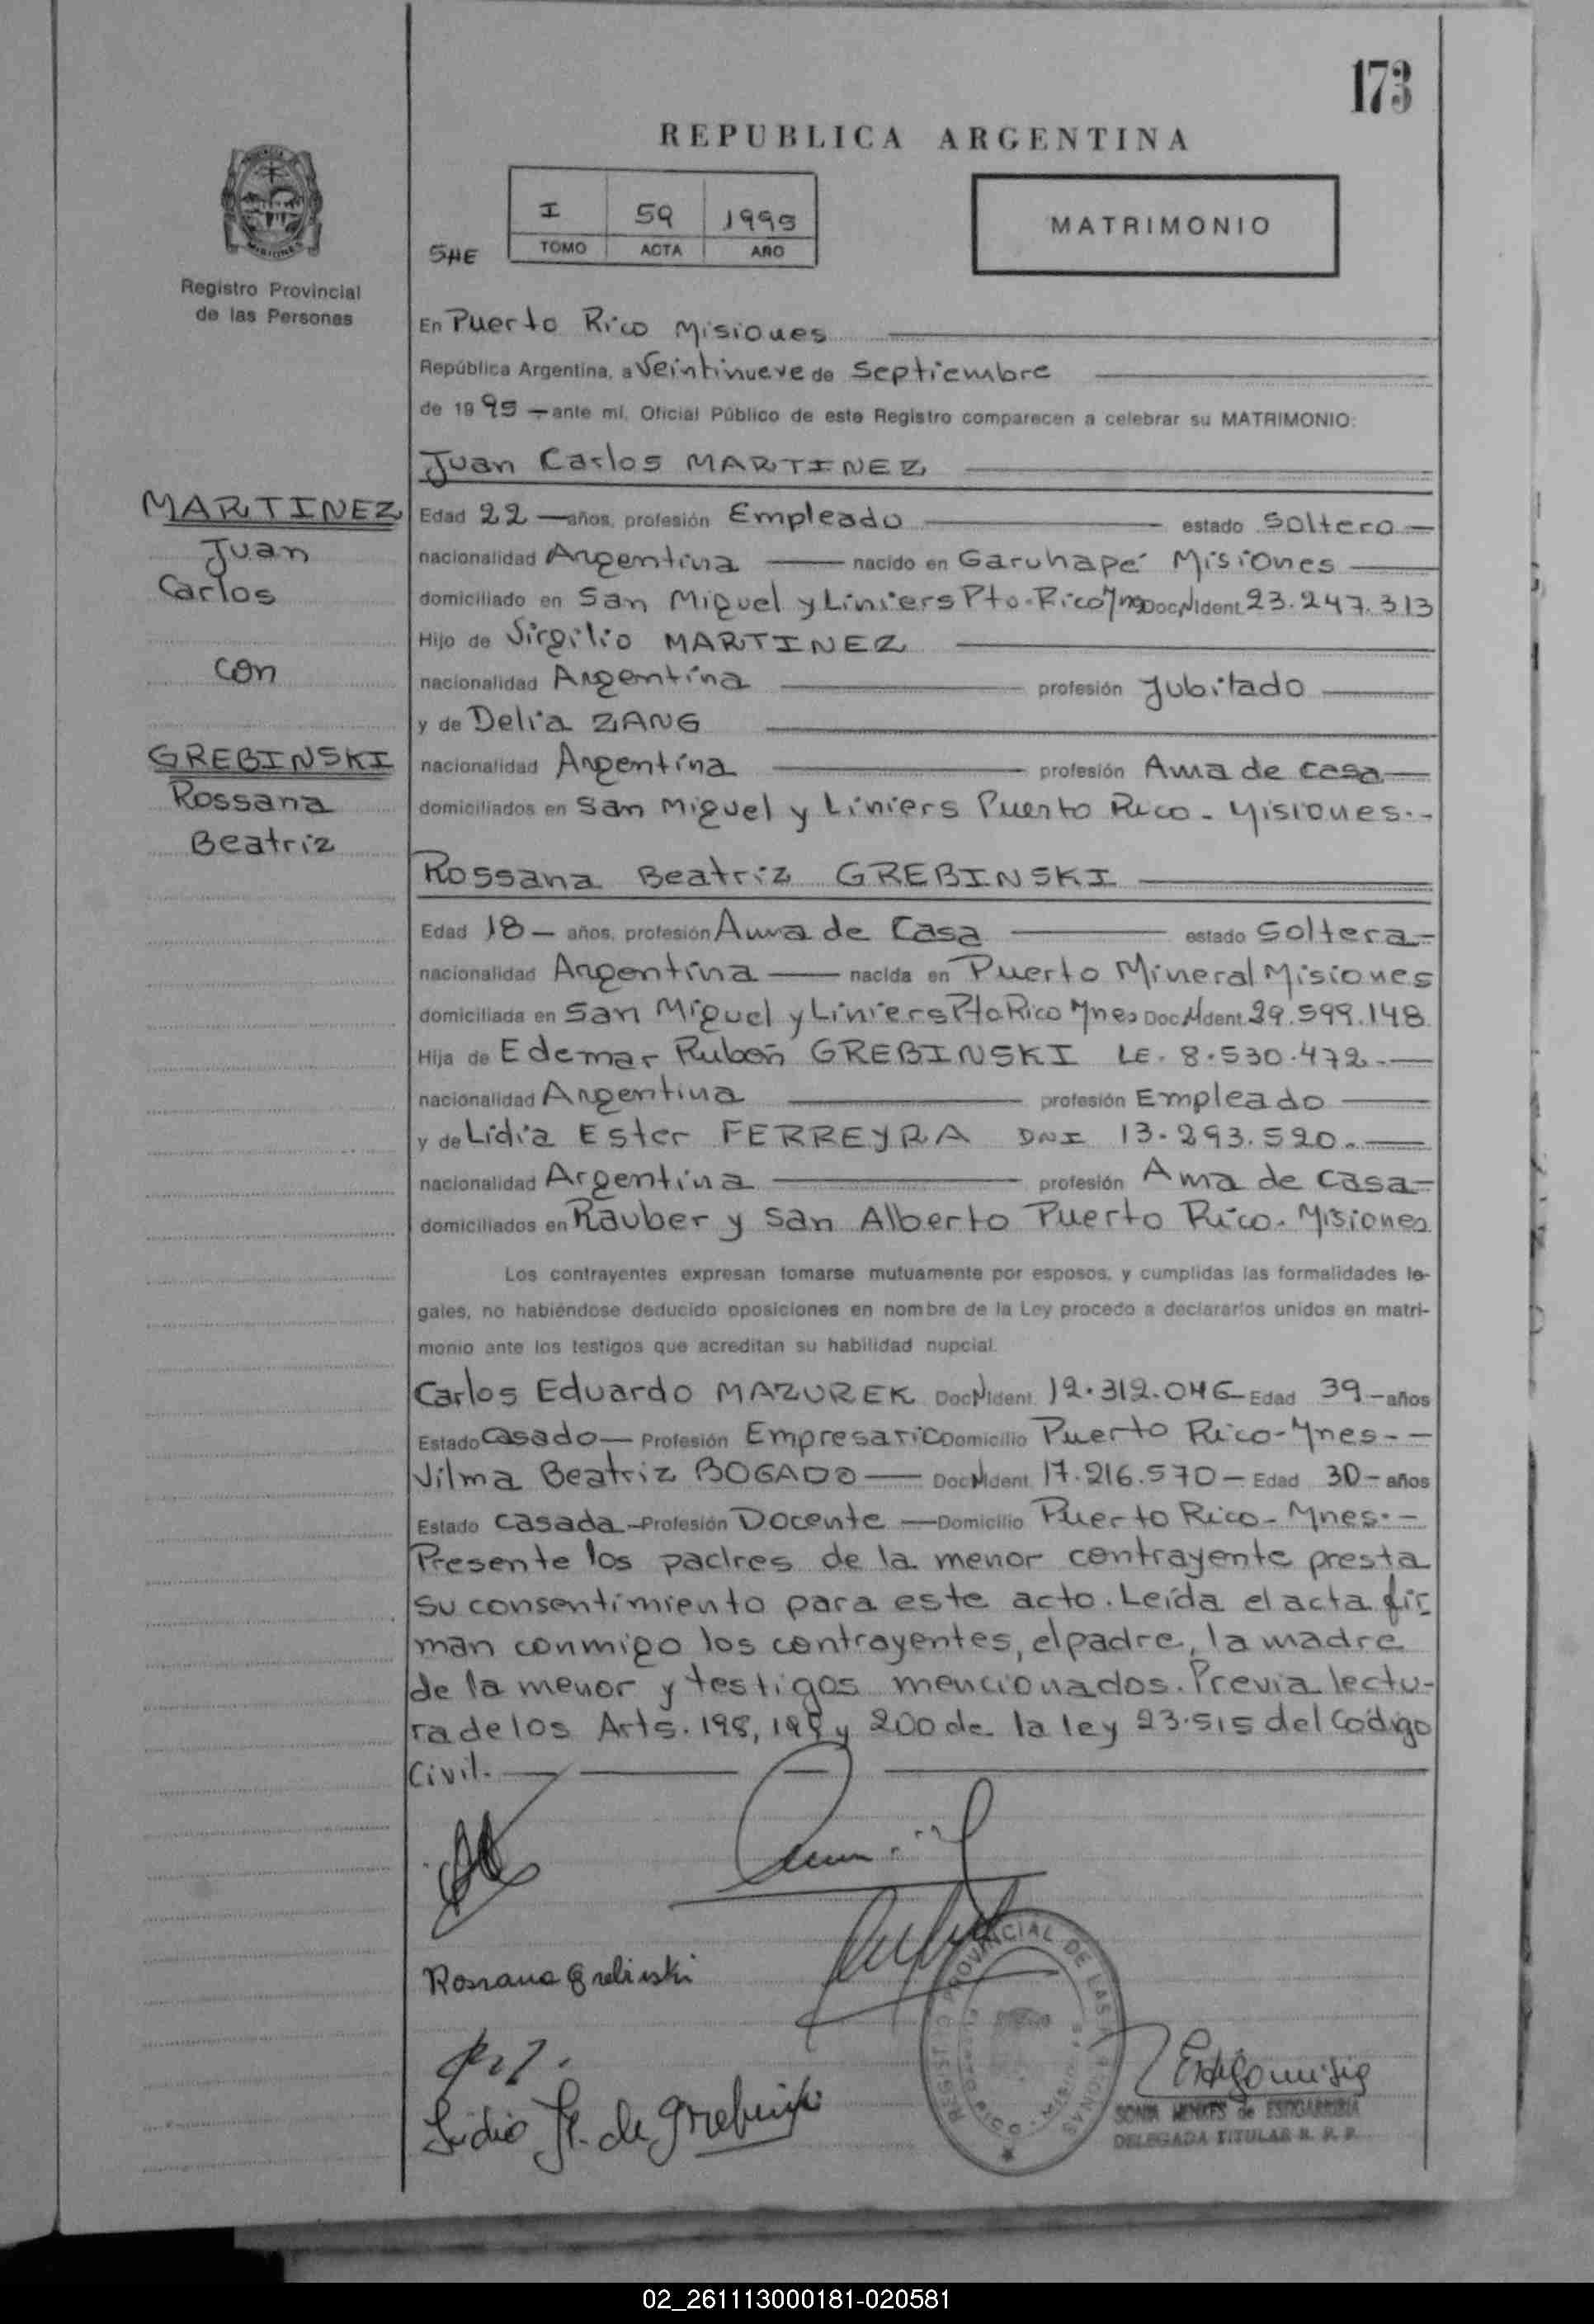 173
REPUBLICA ARGENTINA
I 59 1995
TOMO ACTA AÑO
SHE
MATRIMONIO
Registro Provincial
de las Personas
En Puerto Rico Misiones
República Argentina, a Veintinueve de Septiembre
de 1995 — ante mí, Oficial Público de este Registro comparecen a celebrar su MATRIMONIO:
Juan Carlos MARTINEZ
MARTINEZ
Juan
Carlos
con
GREBINSKI
Rossana
Beatriz
Edad 22 — años, profesión Empleado estado Soltero —
nacionalidad Argentina — nacido en Garuhapé Misiones
domiciliado en San Miguel y Liniers Pto. Rico Mnes Doc. N Ident. 23.247.313
Hijo de Virgilio MARTINEZ
nacionalidad Argentina profesión Jubilado
y de Delia ZANG
nacionalidad Argentina profesión Ama de casa —
domiciliados en San Miguel y Liniers Puerto Rico - Misiones.-
Rossana Beatriz GREBINSKI
Edad 18 — años, profesión Ama de Casa estado Soltera -
nacionalidad Argentina — nacida en Puerto Mineral Misiones
domiciliada en San Miguel y Liniers Pto Rico Mnes Doc. N Ident. 29.599.148
Hija de Edemar Rubén GREBINSKI LE. 8.530.472.-
nacionalidad Argentina profesión Empleado
y de Lidia Ester FERREYRA DNI 13.293.520.-
nacionalidad Argentina profesión Ama de casa -
domiciliados en Rauber y San Alberto Puerto Rico. Misiones
Los contrayentes expresan tomarse mutuamente por esposos, y cumplidas las formalidades le-
gales, no habiéndose deducido oposiciones en nombre de la Ley procedo a declararlos unidos en matri-
monio ante los testigos que acreditan su habilidad nupcial.
Carlos Eduardo MAZUREK Doc. N Ident. 12.312.046 — Edad 39 — años
Estado Casado — Profesión Empresario Domicilio Puerto Rico - Mnes - -
Vilma Beatriz BOGADO — Doc. N Ident. 17.216.570 — Edad 30 — años
Estado Casada — Profesión Docente — Domicilio Puerto Rico - Mnes. -
Presente los padres de la menor contrayente presta
su consentimiento para este acto. Leída el acta fir-
man conmigo los contrayentes, el padre, la madre
de la menor y testigos mencionados. Previa lectu-
ra de los Arts. 198, 199 y 200 de la ley 23.515 del Código
Civil.
Rossana Grebinski
Lidia F. de Grebinski
REGISTRO PROVINCIAL DE LAS PERSONAS
SONIA de ESTIGARRIBIA
DELEGADA TITULAR R. P. P.
02_261113000181-020581